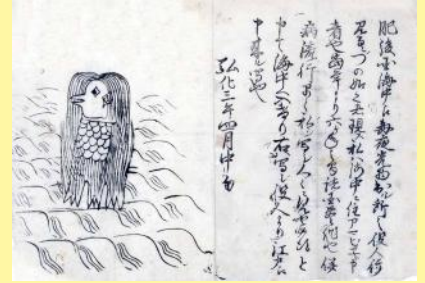 肥後国海中え毎夜光物出ル所之役人行
見るニづの如之者現ス私ハ海中ニ住アマビヱト申
者也當年より六ヶ年之間諸国豊作也併
病流行早々私シ写シ人々ニ見セ候得と
申て海中へ入けり右写シ役人より江戸え
申来ル写也
弘化三年四月中旬